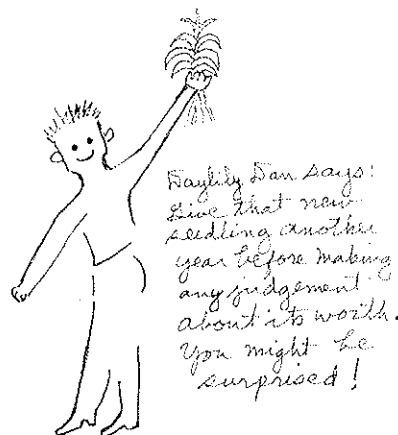 Daylily Dan says:
Give that new
seedling another
year before making
any judgement
about its worth.
You might be
surprised!